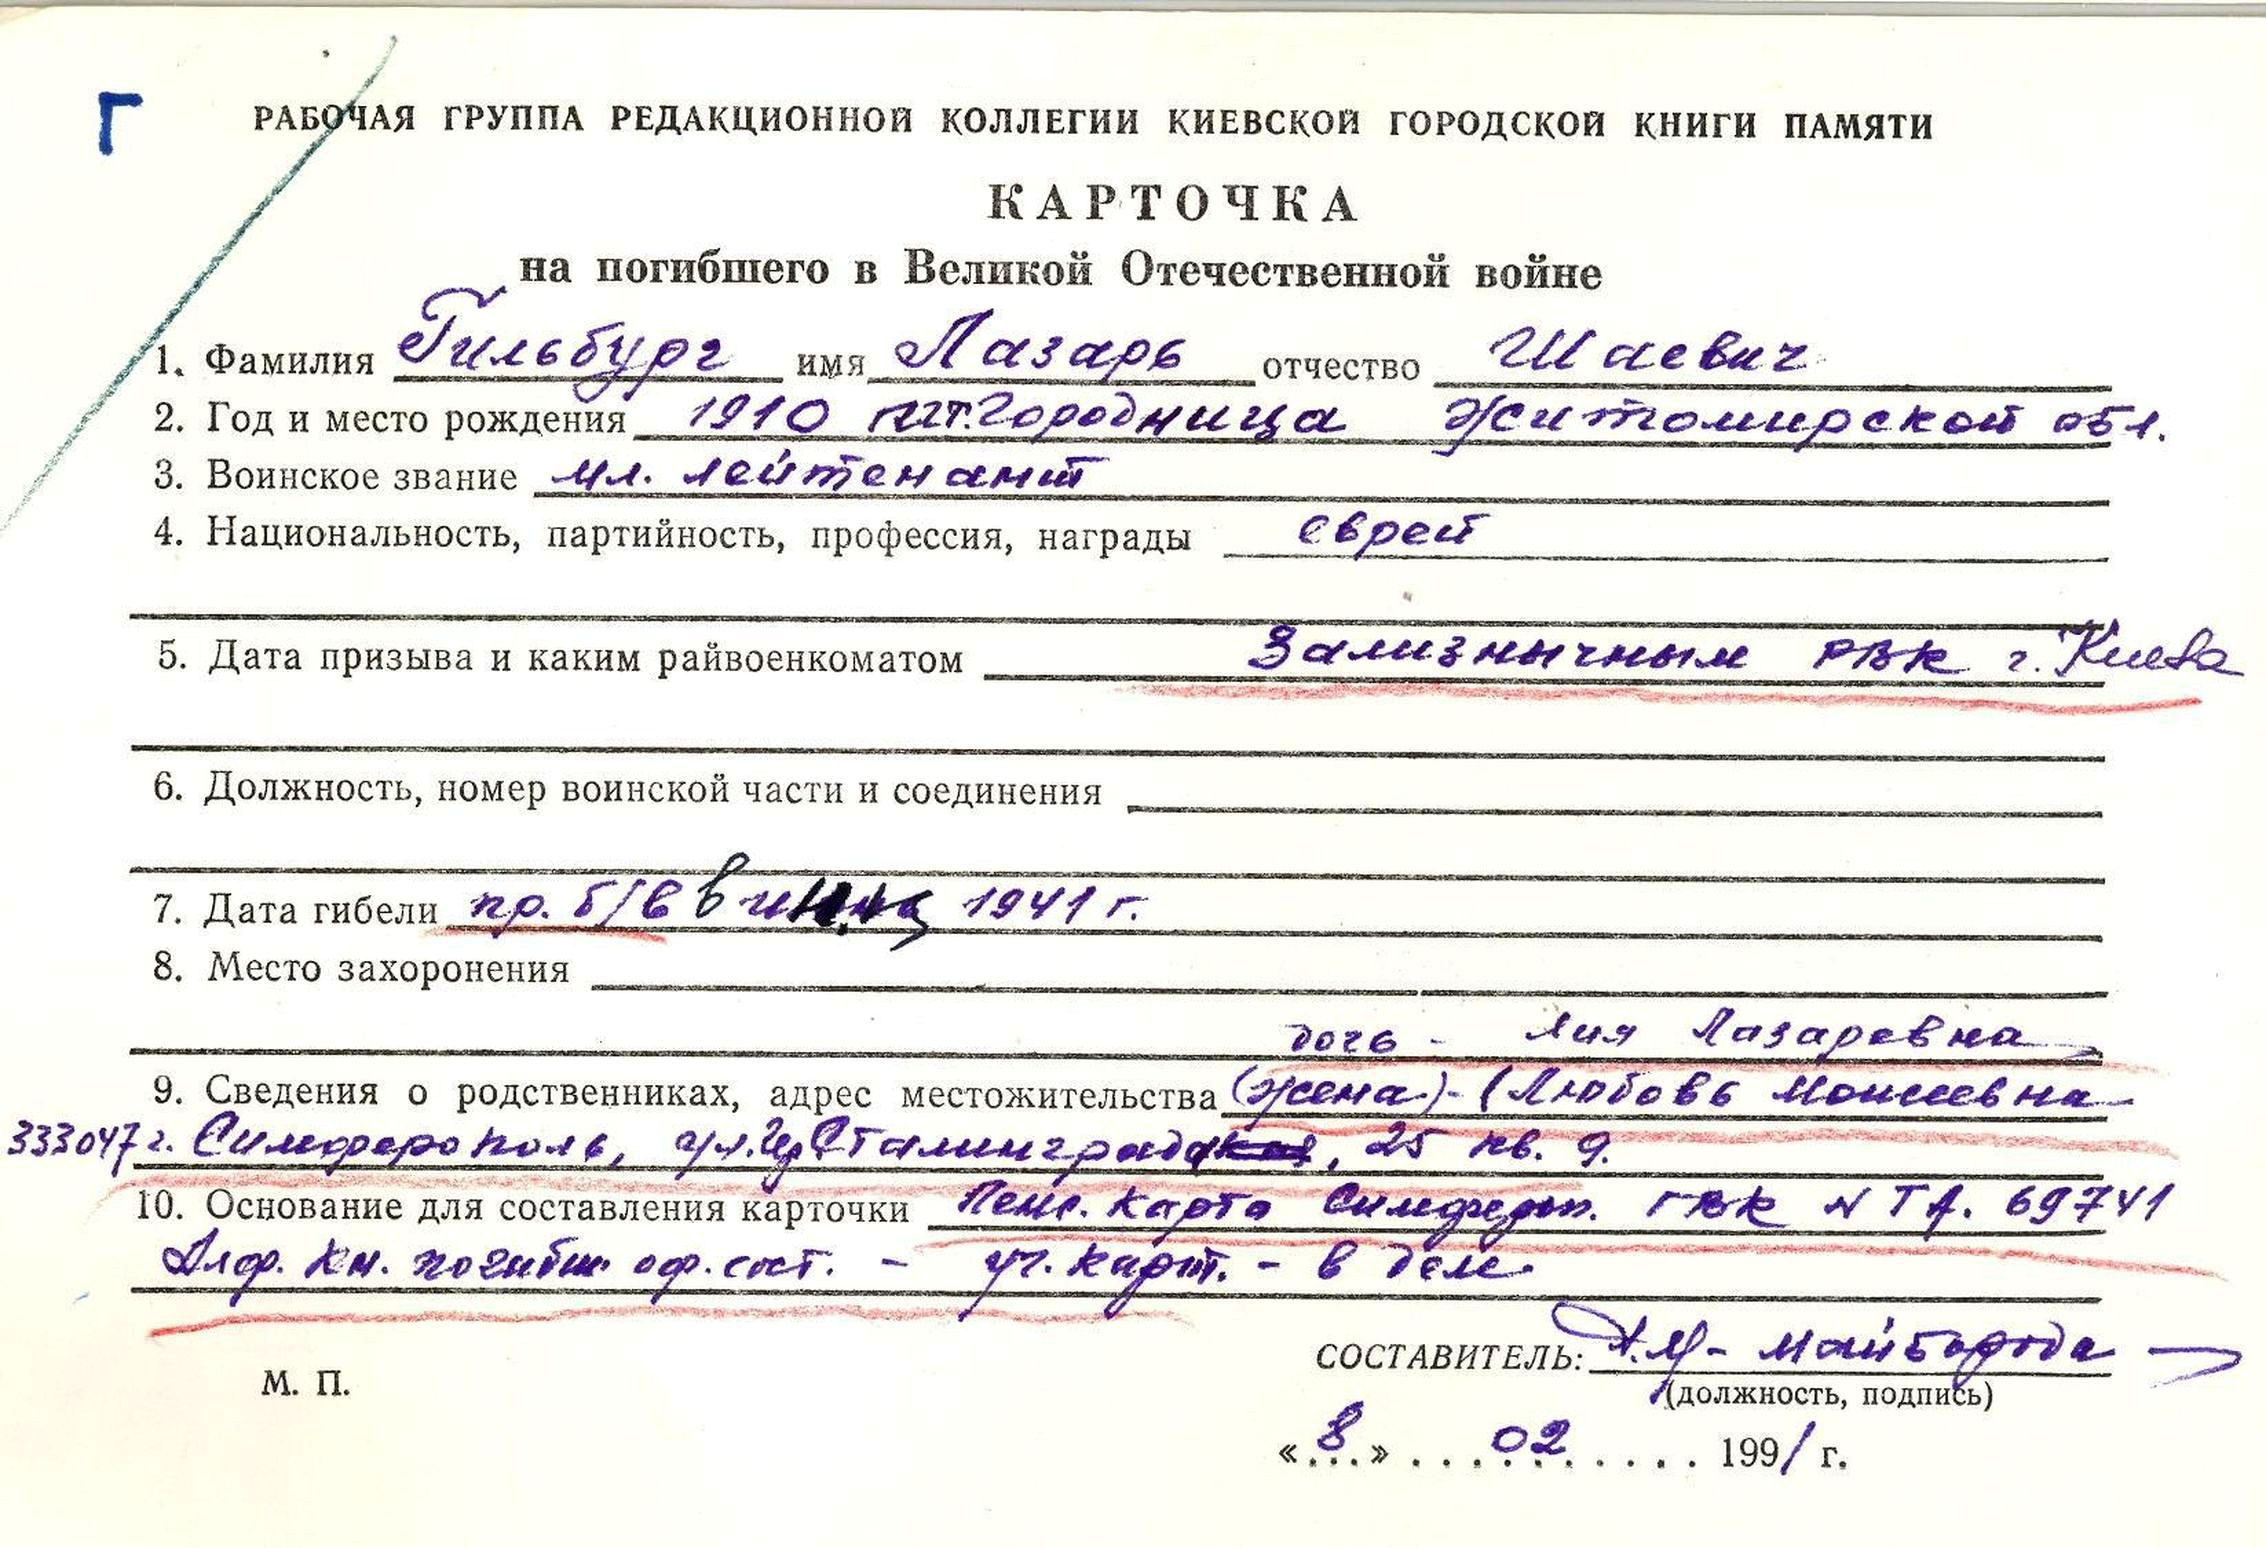 Г
РАБОЧАЯ ГРУППА РЕДАКЦИОННОЙ КОЛЛЕГИИ КИЕВСКОЙ ГОРОДСКОЙ КНИГИ ПАМЯТИ
КАРТОЧКА
на погибшего в Великой Отечественной войне
1. Фамилия Гильбург имя Лазарь отчество Шаевич
2. Год и место рождения 1910 пгт. Городница Житомирской обл.
3. Воинское звание мл. лейтенант
4. Национальность, партийность, профессия, награды еврей
5. Дата призыва и каким райвоенкоматом Зализнычным РВК г. Киева
6. Должность, номер воинской части и соединения
7. Дата гибели пр. б/в в 1941 г.
8. Место захоронения
дочь - Лия Лазаревна
9. Сведения о родственниках, адрес местожительства (жена) - (Любовь Моисеевна
333047 г. Симферополь, ул. Сталинграда, 25 кв. 9.
10. Основание для составления карточки Пенс. карта Симфероп. ГВК N ТА. 69741
Алф. кн. погибш. оф. сост. - уч. карт. - в деле
СОСТАВИТЕЛЬ: Майборода
М. П.
(должность, подпись)
«8» 02 1991 г.